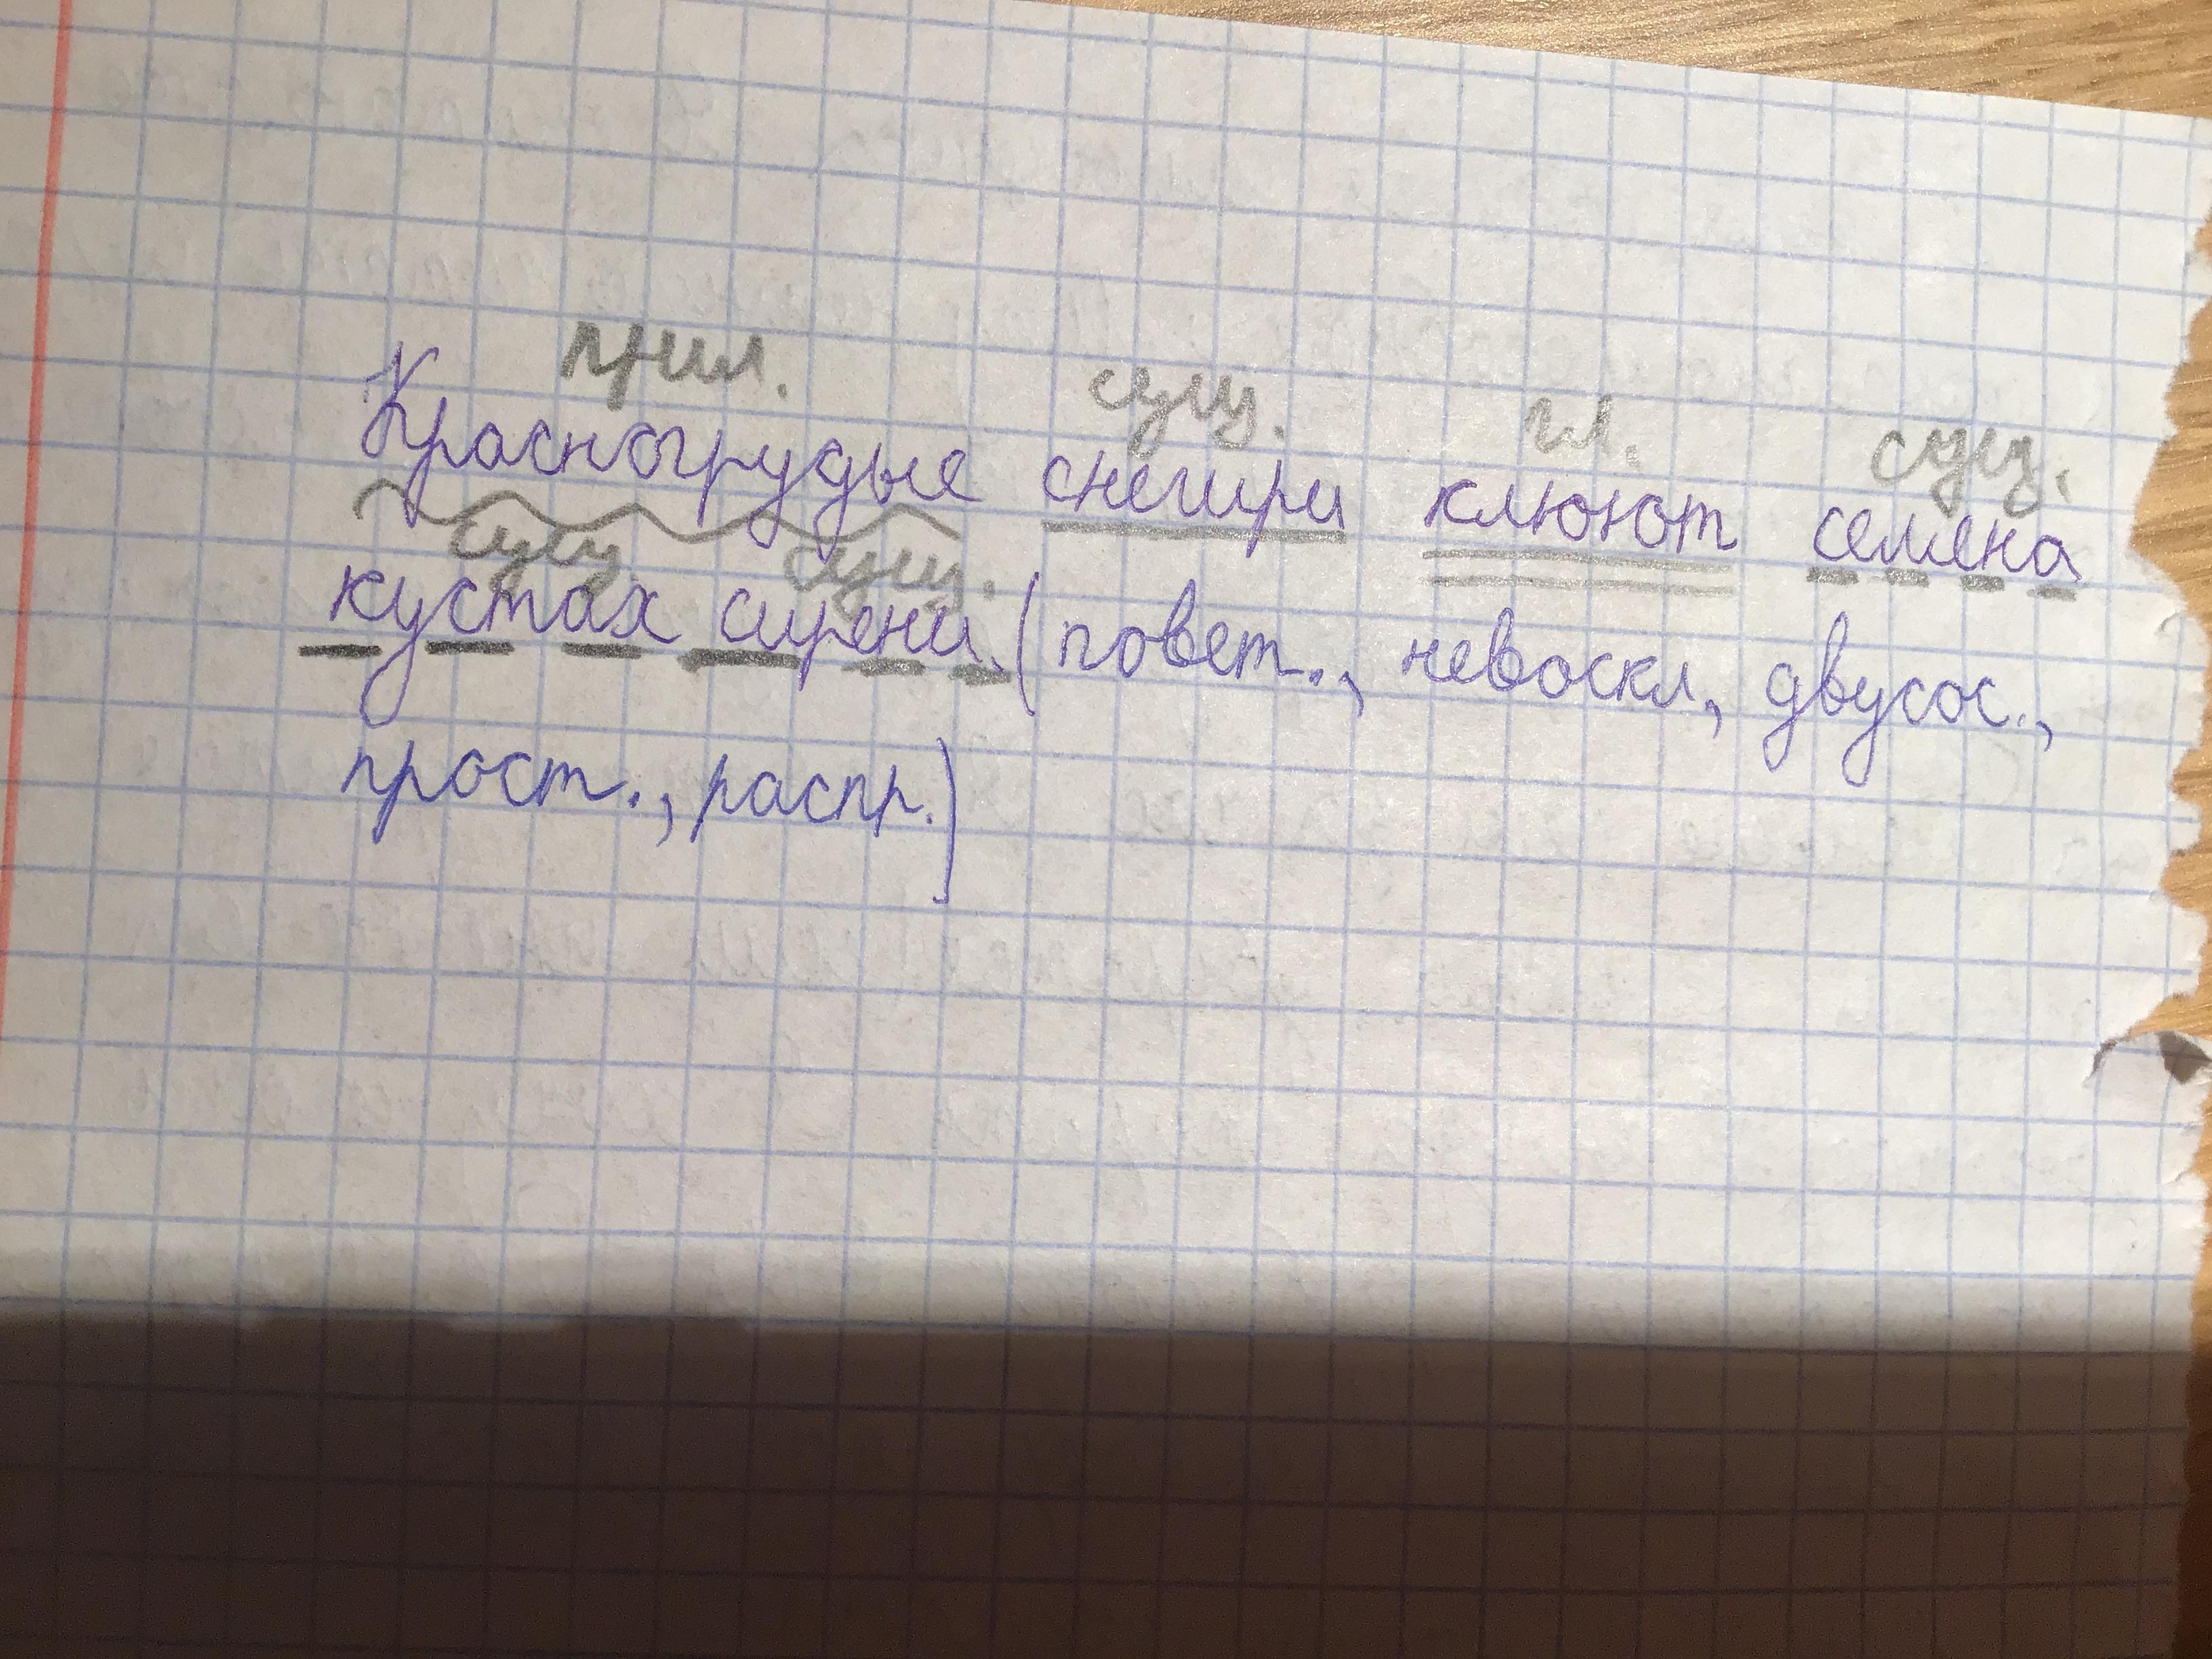 прил. сущ. гл. сущ.
Красногрудые снегири клюют семена
сущ. сущ.
кустах сирени. (повет., невоскл, двусос.,
прост., распр.)